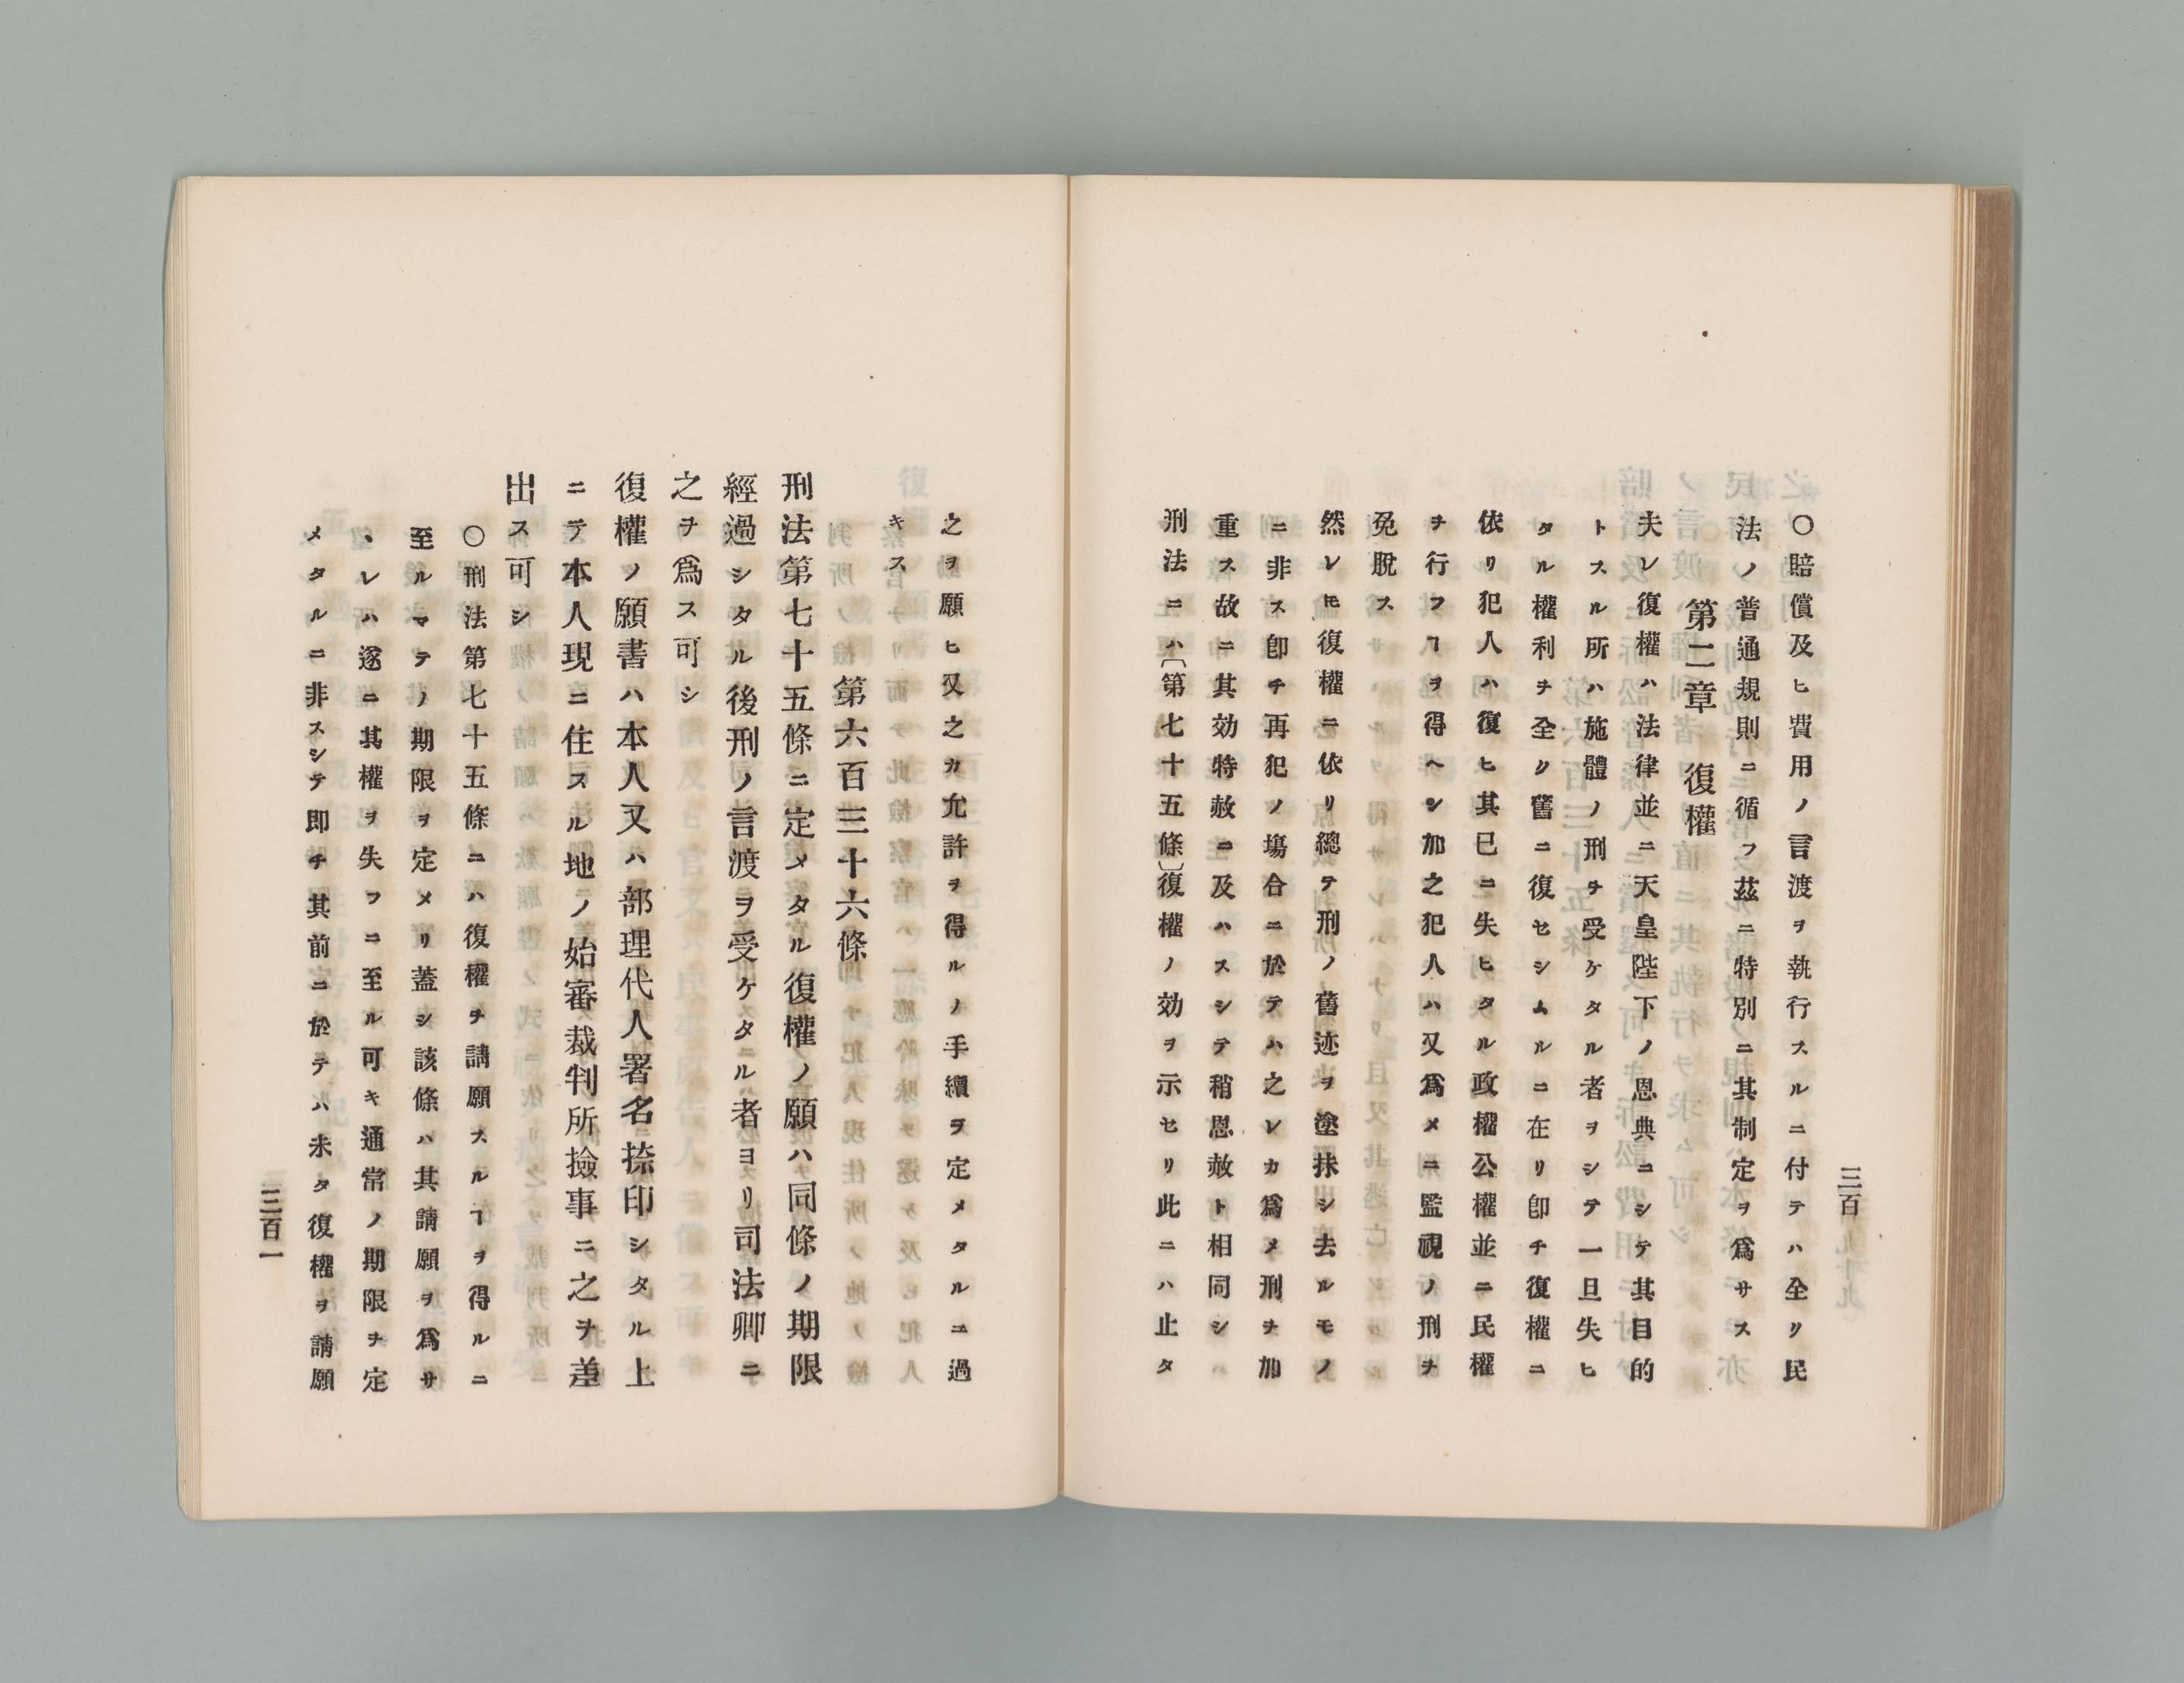 三百
〇賠償及ヒ費用ノ言渡ヲ執行スルニ付テハ全ク民
法ノ普通規則ニ循フ茲ニ特別ニ其制定ヲ爲サス
第二章　復權
夫レ復權ハ法律並ニ天皇陛下ノ恩典ニシテ其目的
トスル所ハ施體ノ刑ヲ受ケタル者ヲシテ一旦失ヒ
タル權利ヲ全ク舊ニ復セシムルニ在リ卽チ復權ニ
依リ犯人ハ復ヒ其已ニ失ヒタル政權公權並ニ民權
ヲ行フヿヲ得ヘシ加之犯人ハ又爲メニ監視ノ刑ヲ
免脫ス
然レ𪜈復權ニ依リ總テ刑ノ舊迹ヲ塗抹シ去ルモノ
ニ非ス卽チ再犯ノ塲合ニ於テハ之レカ爲メ刑ヲ加
重ス故ニ其効特赦ニ及ハスシテ稍恩赦ト相同シ
刑法ニハ〔第七十五條〕復權ノ効ヲ示セリ此ニハ止タ
之ヲ願ヒ又之カ允許ヲ得ルノ手續ヲ定メタルニ過
キス
第六百三十六條
刑法第七十五條ニ定メタル復權ノ願ハ同條ノ期限
經過シタル後刑ノ言渡ヲ受ケタル者ヨリ司法卿ニ
之ヲ爲ス可シ
復權ノ願書ハ本人又ハ部理代人署名捺印シタル上
ニテ本人現ニ住スル地ノ始審裁判所撿事ニ之ヲ差
出ス可シ
〇刑法第七十五條ニハ復權ヲ請願スルヿヲ得ルニ
至ルマテノ期限ヲ定メリ蓋シ該條ハ其請願ヲ爲サ
ヽレハ遂ニ其權ヲ失フニ至ル可キ通常ノ期限ヲ定
メタルニ非スシテ卽チ其前ニ於テハ未タ復權ヲ請願
三百一